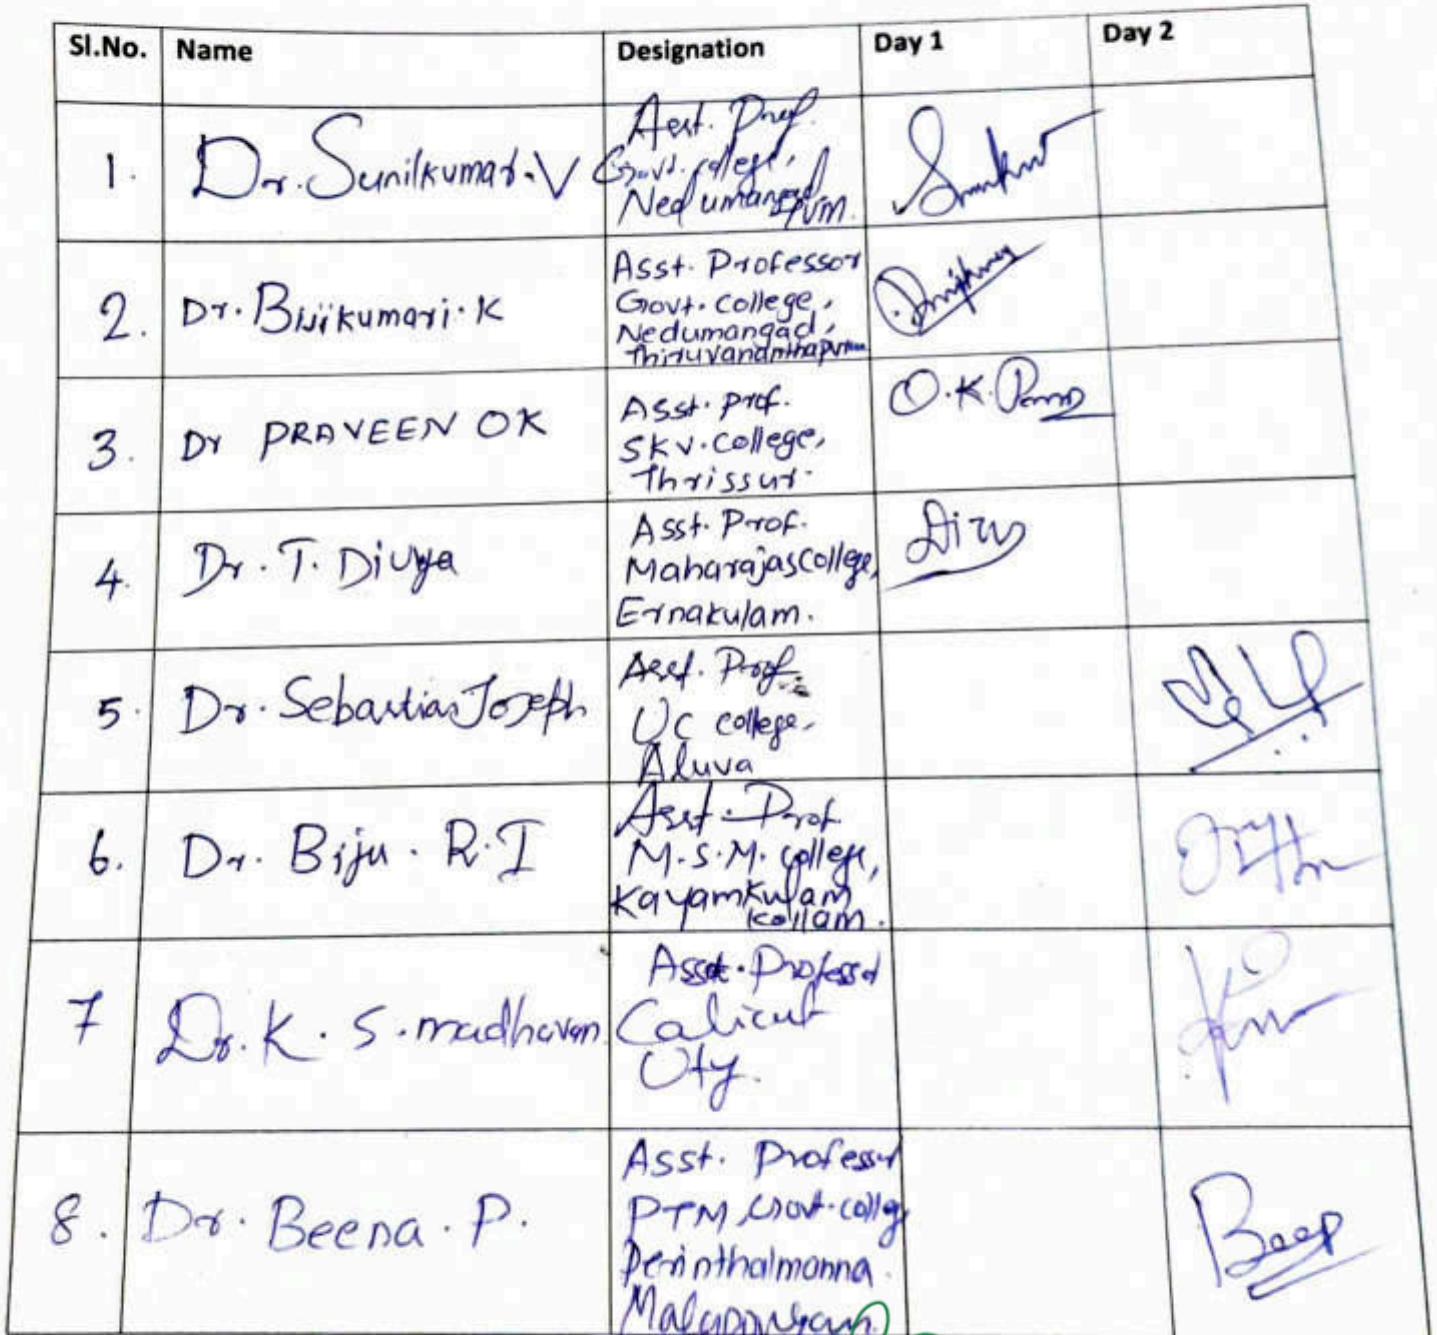 Sl.No. Name Designation Day 1 Day 2
1. Dr. Sunilkumar. V Asst. Prof.
Govt. college,
Nedumangad
TVM.
2. Dr. Bijikumari. K Asst. Professor
Govt. college,
Nedumangad,
Thiruvananthapuram
3. Dr PRAVEEN OK Asst. prof. O.K.
SKV. College,
Thrissur.
4. Dr. T. Divya Asst. Prof.
Maharajas College,
Ernakulam.
5. Dr. Sebastian Joseph Asst. Prof.
UC college,
Aluva
6. Dr. Biju. R. I Asst. Prof
M.S.M. College,
Kayamkulam
Kollam.
7 Dr. K. S. madhavan Asst. Professor
Calicut
Uty.
8. Dr. Beena. P. Asst. Professor
PTM Govt. colleg
Perinthalmanna